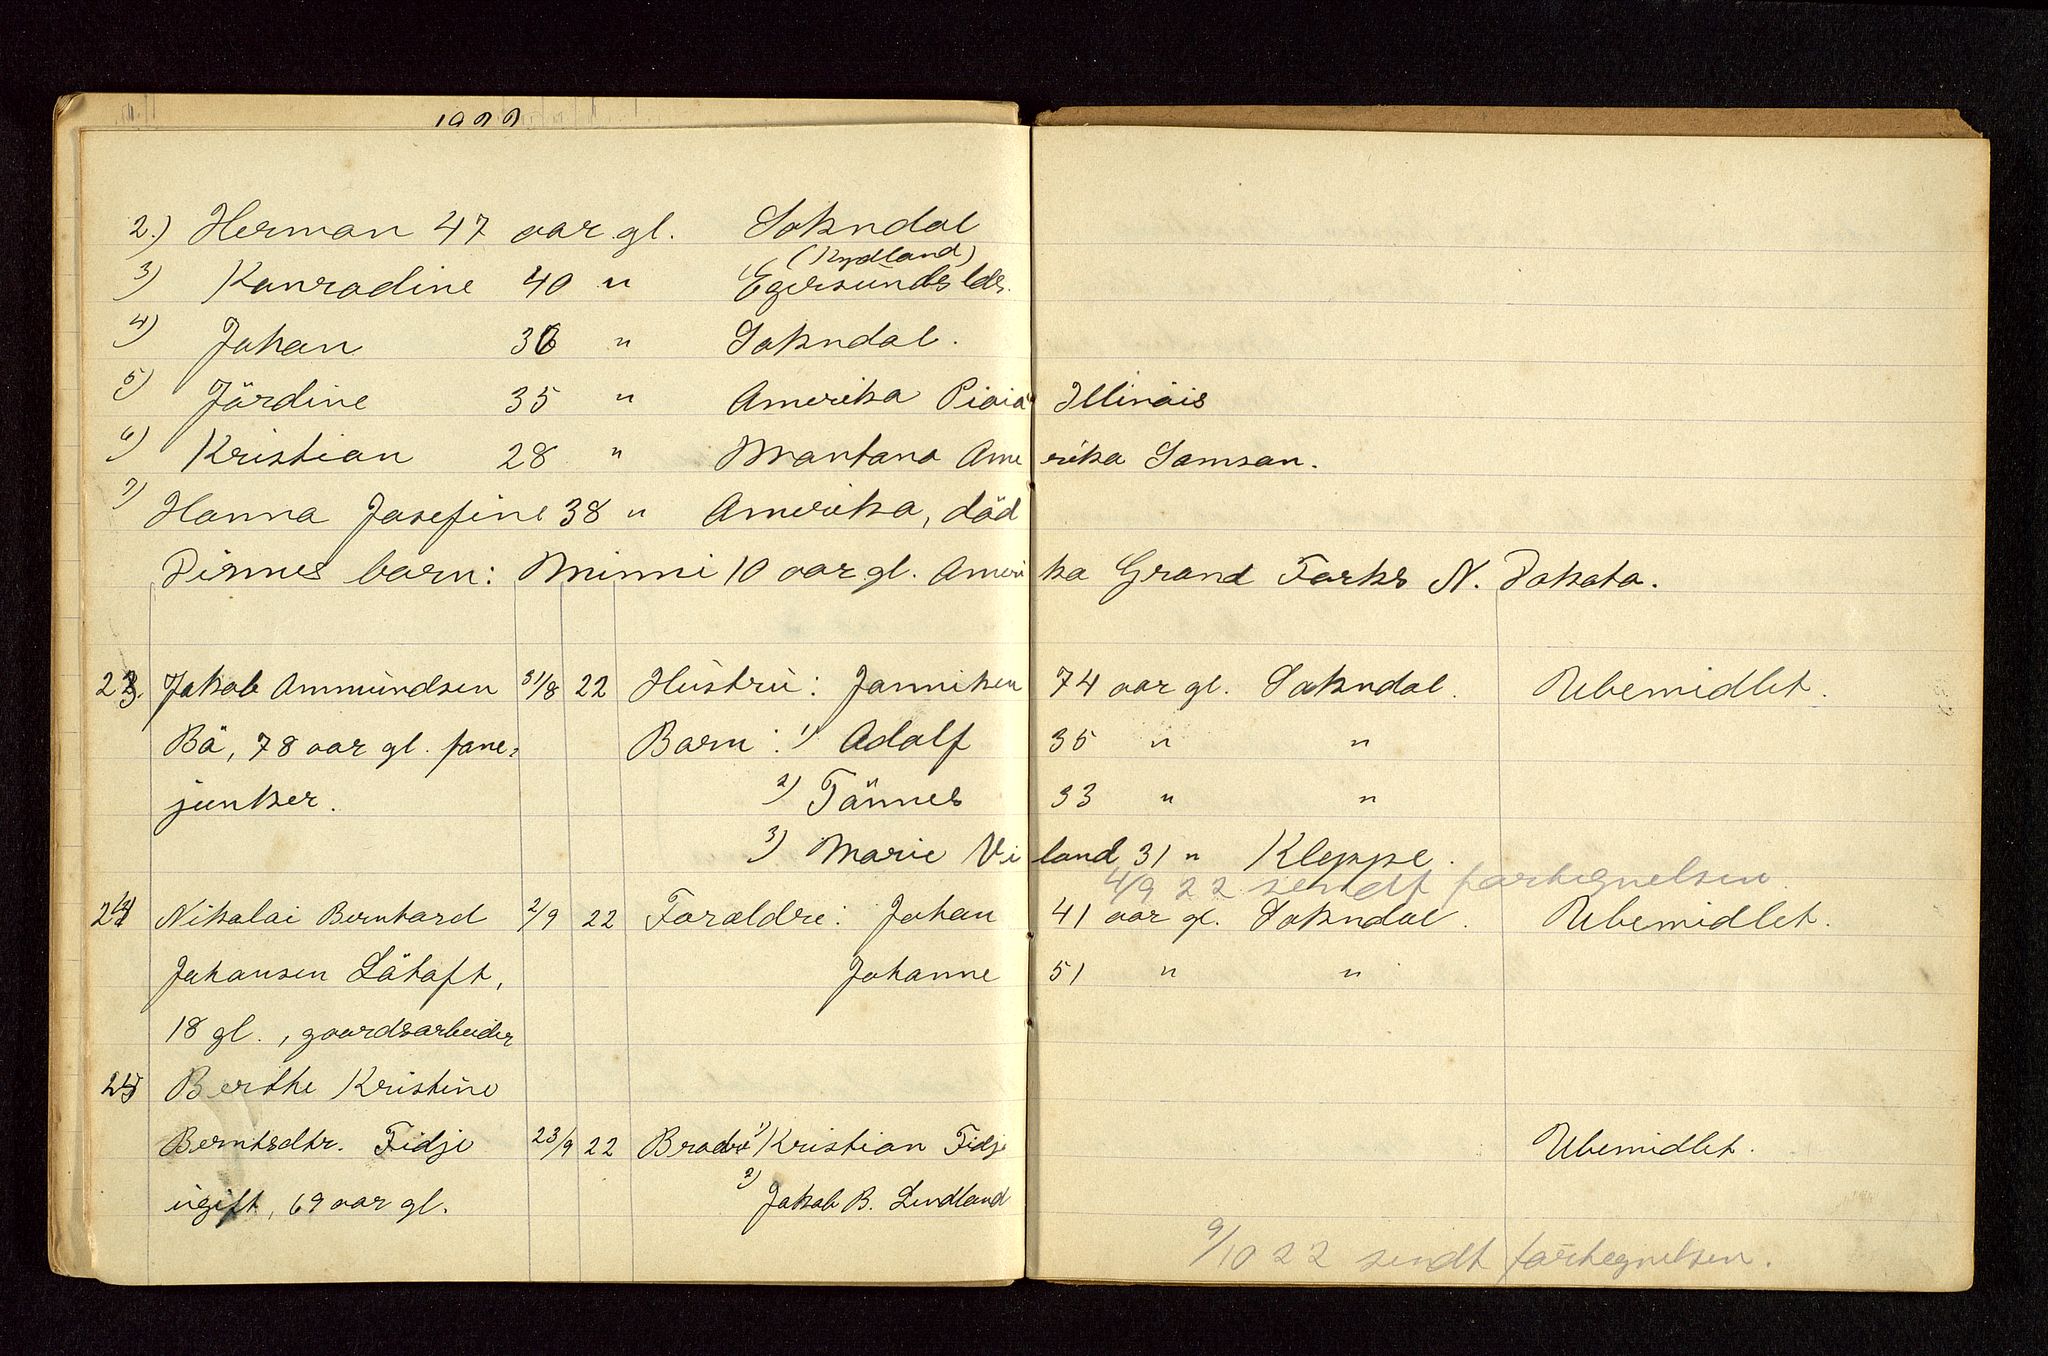 1922
2.) Herman 47 aar gl. Sokndal
(Rydland)
3) Konradine 40 " Egersunds lds.
4) Johan 36 " Sokndal.
5) Jördine 35 " Amerika Illinois
6) Kristian 28 " Montana Amerika Samson.
7) Hanna Josefine 38 " Amerika, död
Dennes barn: Minni 10 aar gl. Amerika Grand Forks N. Dakota.
23. Jakob Ammundsen 31/8 22 Hustru: Janniken 74 aar gl. Sokndal. Ubemidlet.
Bö, 78 aar gl. fane- Barn: 1) Adolf 35 " "
junker. 2) Tönnes 33 " "
3) Marie Viland 31 " Kleppe.
4/9 22 sendt fortegnelsen.
24 Nikolai Bernhard 2/9 22 Foræld­re: Johan 41 aar gl. Sokndal. Ubemidlet.
Johansen Låtoft, Johanne 51 " "
18 gl., gaardsarbeider
25 Berthe Kristine
Berntsdtr. Fidje 23/9 22 Brödre 1) Kristian Fidje Ubemidlet.
ugift, 69 aar gl. 2) Jakob B. Lindland
9/10 22 sendt fortegnelsen.